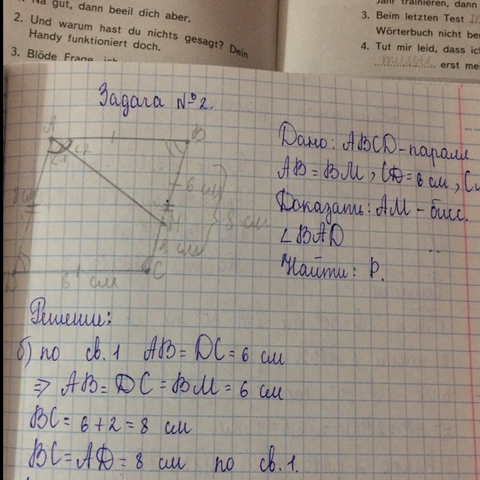 Na gut, dann beeil dich aber.
2. Und warum hast du nichts gesagt? Dein
Handy funktioniert doch.
3. Blöde Frage, ich
trainieren, dann
3. Beim letzten Test
Wörterbuch nicht be
4. Tut mir leid, dass ich
erst me
Задача №2.
A
B
1
2
6 см
8 см
M
2 см
8 см
D
6 см
C
Дано: ABCD-паралл.
AB=BM, CD=6 см, C
Доказать: AM - бисс.
∠BAD
Найти: P.
Решение:
б) по св. 1 AB=DC=6 см
⇒ AB=DC=BM=6 см
BC=6+2=8 см
BC=AD=8 см по св. 1.